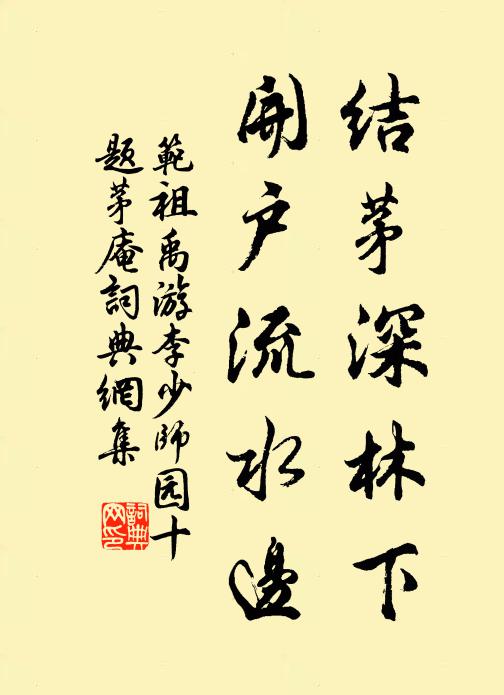 结茅深林下
開户流水邊
範祖禹游李少師园十
题茅庵詞典網集
詞典网印